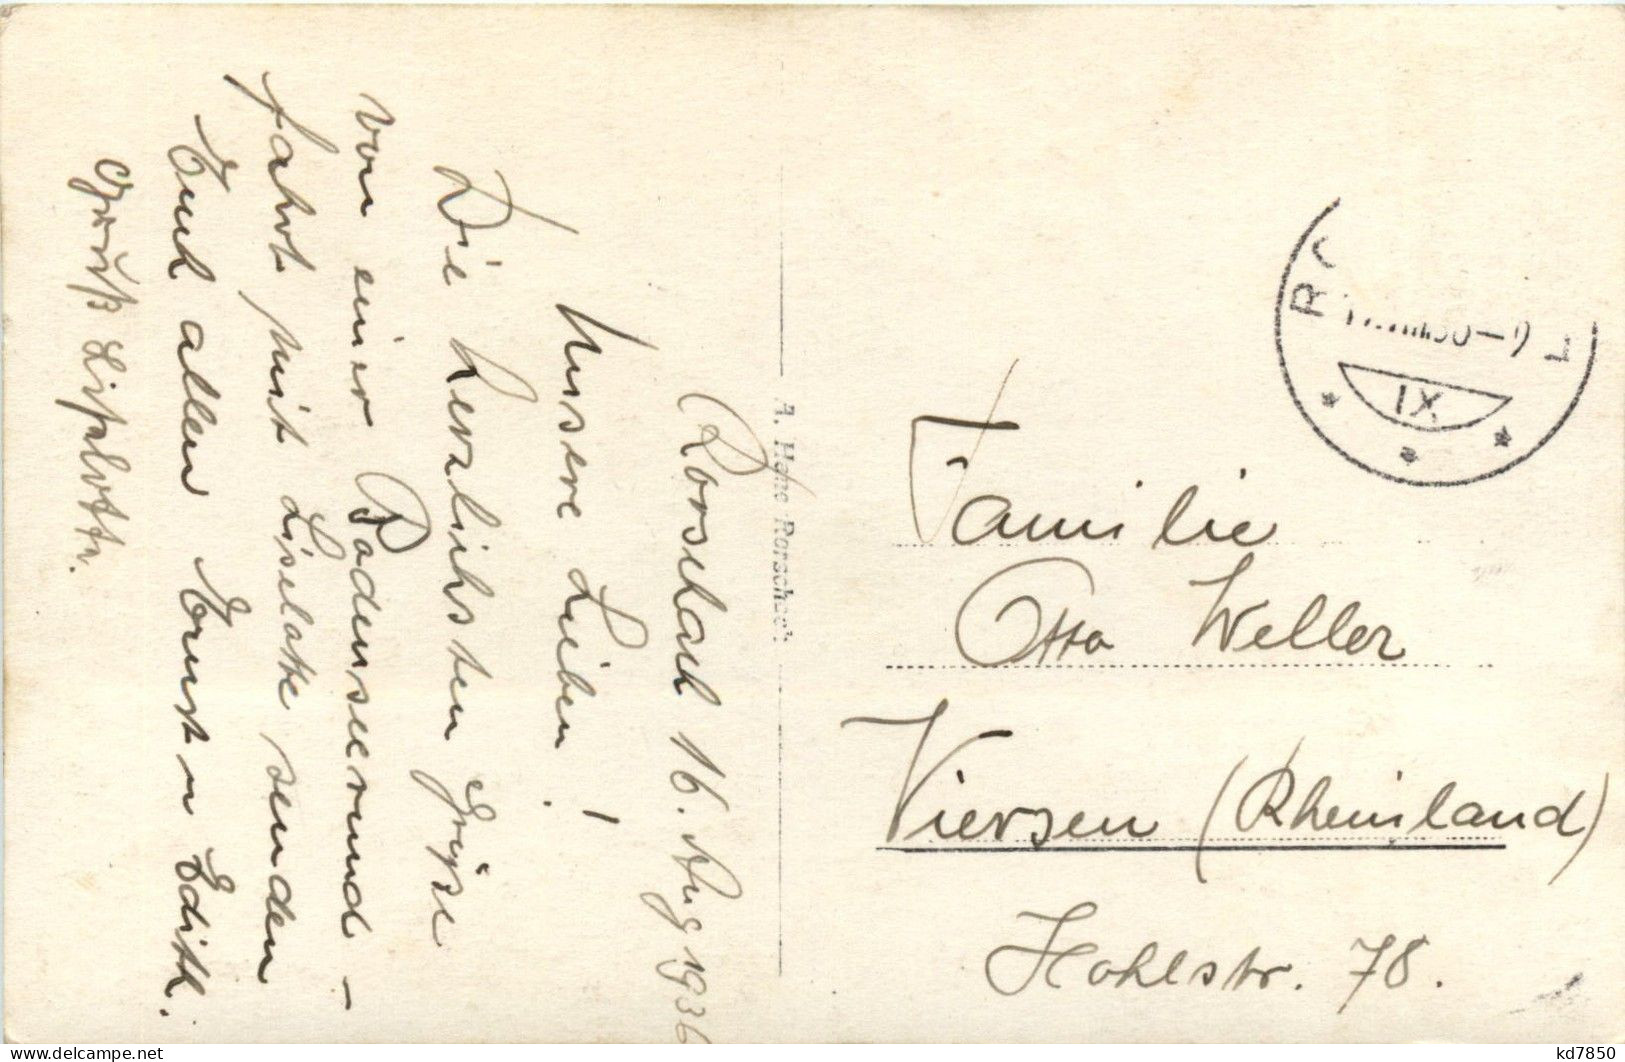 Rorschach 16. Aug 1936
Unsere Lieben!
Die herzlichsten Grüße
von einer Bodenseerund-
fahrt mit Liselotte senden
Euch allen Ernst u Edith.
Gruß Liselotte.
A. Hane Rorschach
IX
Familie
Otto Weller
Viersen (Rheinland)
Hohlstr. 78.
kd7850